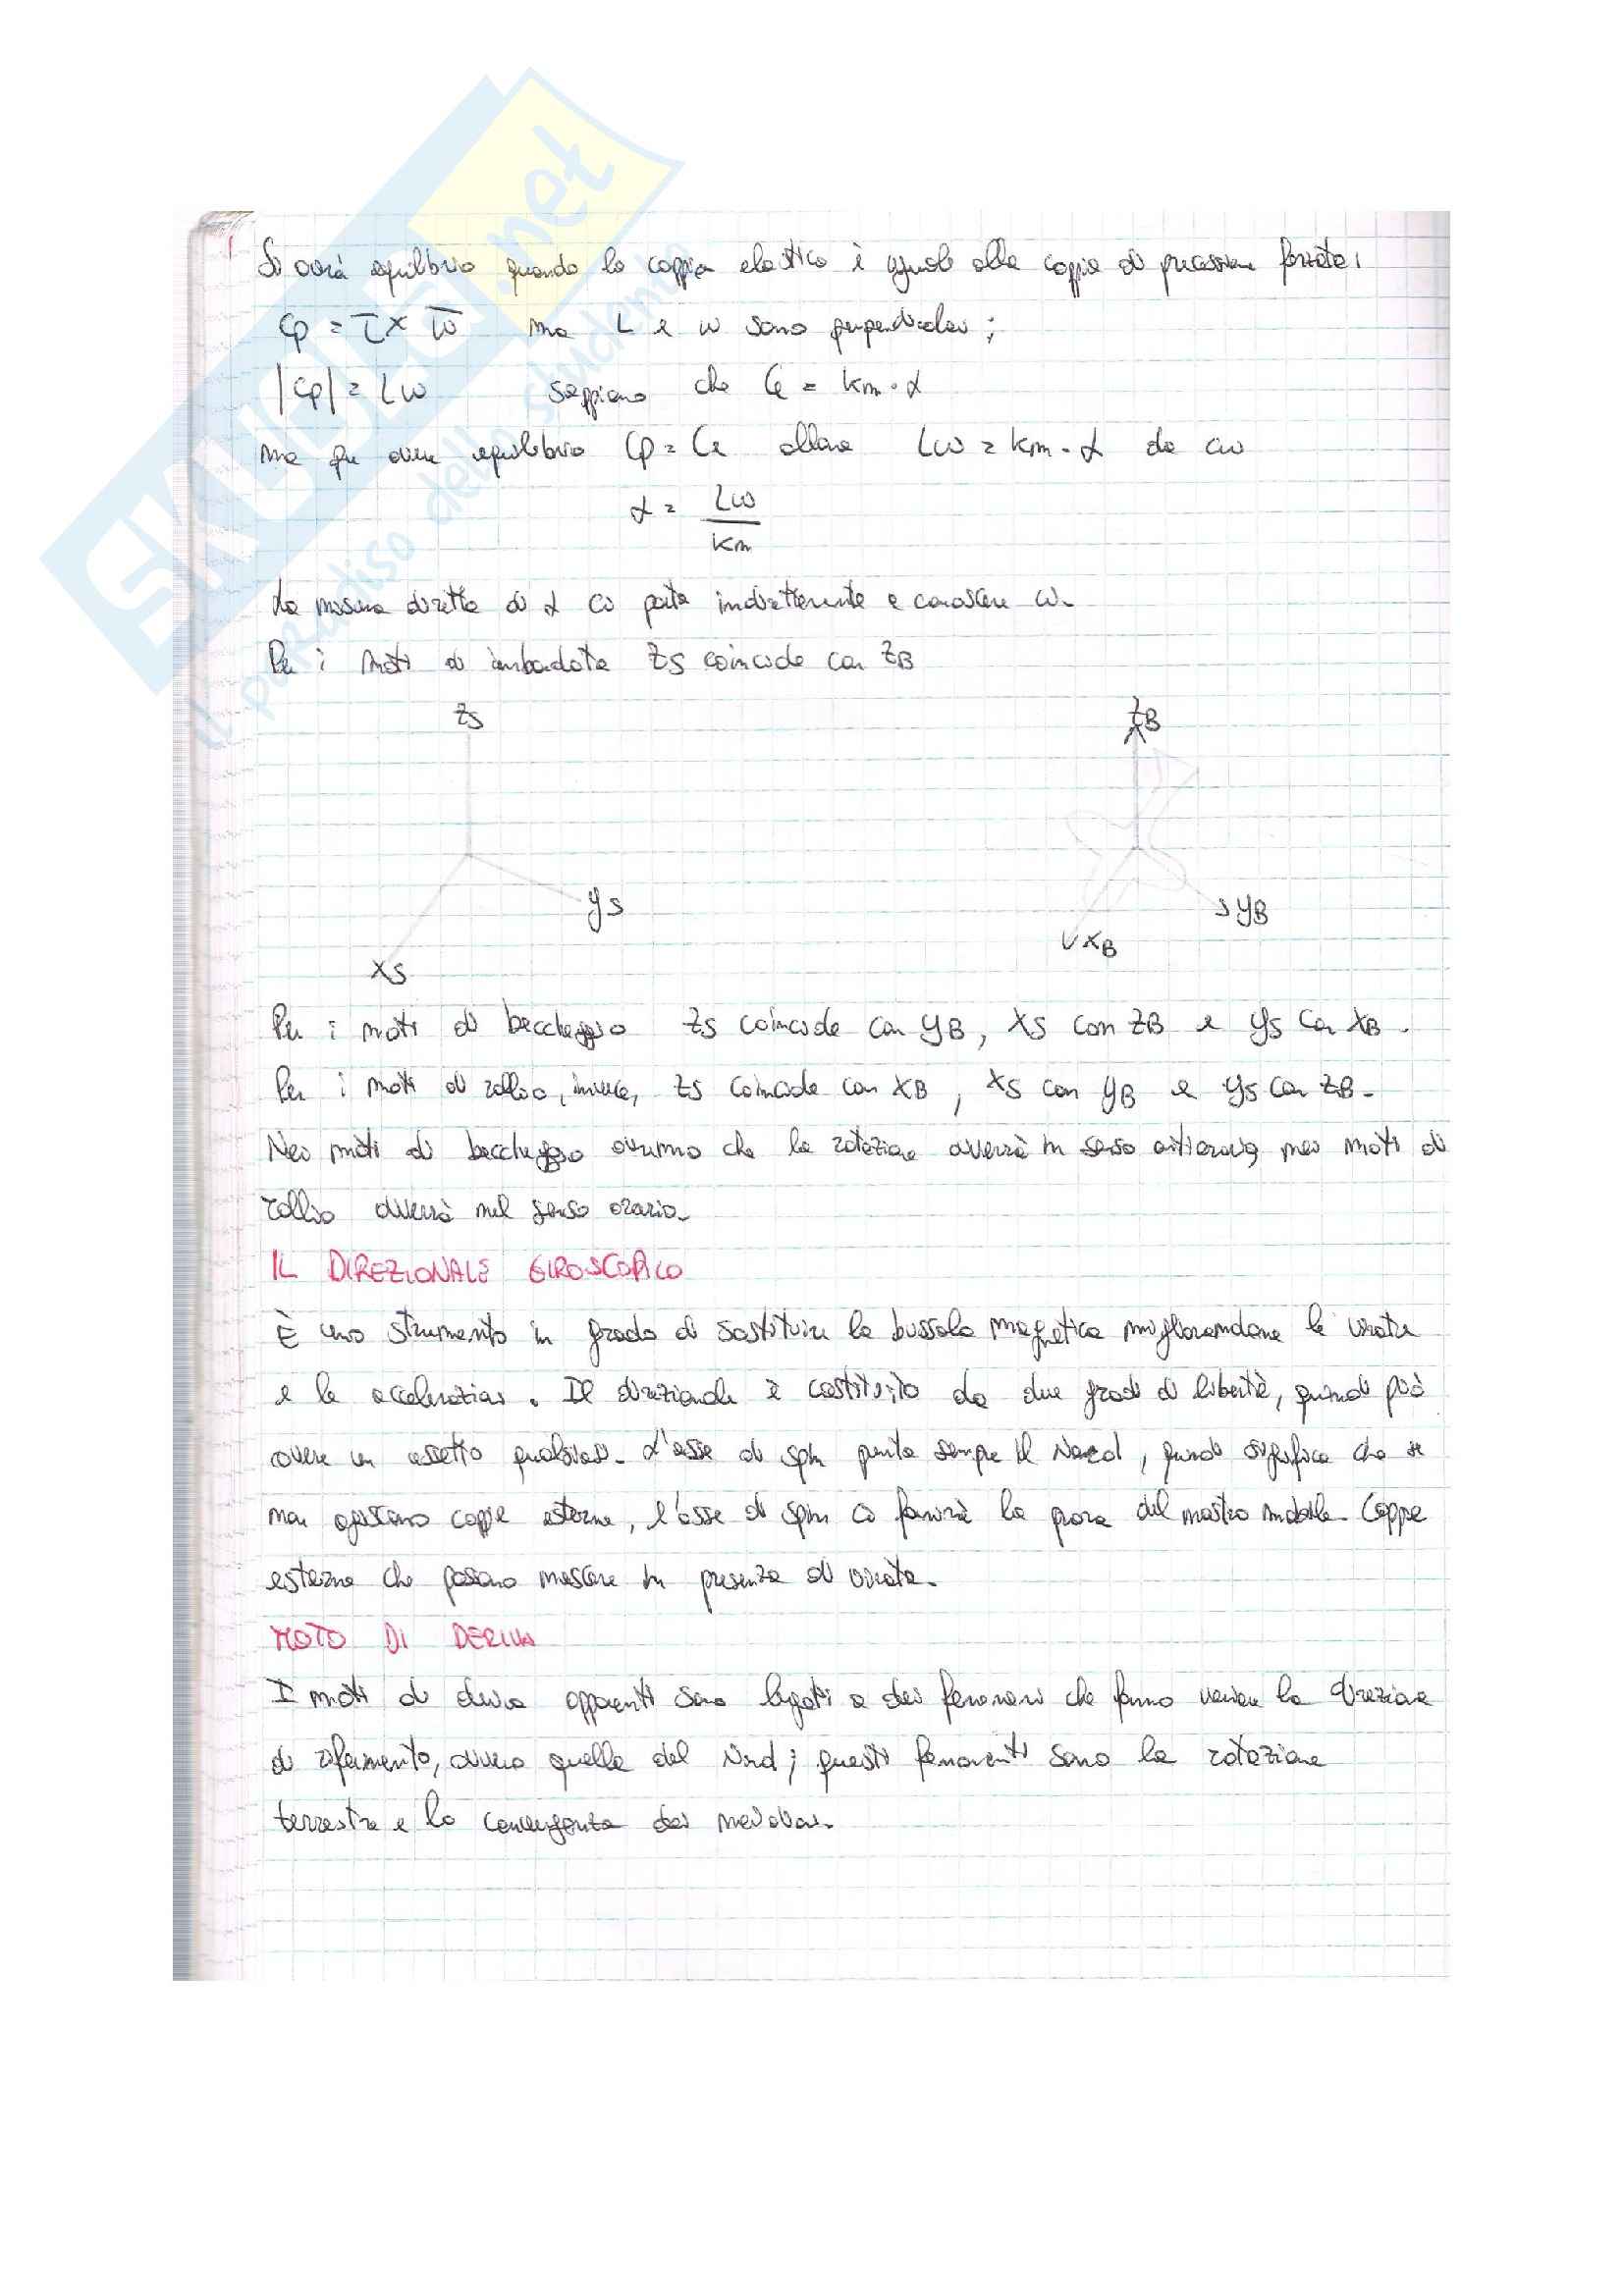 SKUOLA.net
Il paradiso dello studente
Si avrà equilibrio quando la coppia elastica è uguale alla coppia di precessione forzata:
Cp = L̄ x ω̄ ma L e ω sono perpendicolari;
|Cp| = Lω sappiamo che Ce = km · α
ma per avere equilibrio Cp = Ce allora Lω = km · α da cui
α = Lω / km
La misura diretta di α ci porta indirettamente a conoscere ω.
Per i moti di imbardata ZS coincide con ZB
ZS ZB
yS yB
XS XB
Per i moti di beccheggio ZS coincide con yB, XS con ZB e yS con XB.
Per i moti di rollio, invece, ZS coincide con XB, XS con yB e yS con ZB.
Nei moti di beccheggio avremo che la rotazione avverrà in senso antiorario, nei moti di
rollio avverrà nel senso orario.
IL DIREZIONALE GIROSCOPICO
È uno strumento in grado di sostituire la bussola magnetica migliorandone le virate
e le accelerazioni. Il direzionale è costituito da due gradi di libertà, quindi può
avere un assetto qualsiasi. L'asse di spin punta sempre il Nord, quindi significa che se
non agiscono coppie esterne, l'asse di spin ci fornirà la prora del nostro mobile. Coppie
esterne che possono nascere in presenza di virata.
MOTO DI DERIVA
I moti di deriva apparenti sono legati a dei fenomeni che fanno variare la direzione
di riferimento, ovvero quella del Nord; questi fenomeni sono la rotazione
terrestre e la convergenza dei meridiani.